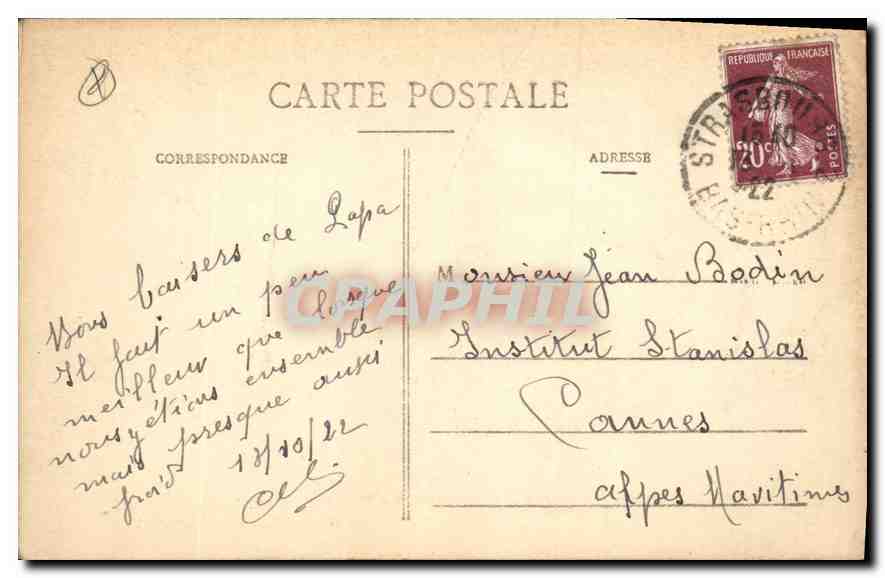 CARTE POSTALE
CORRESPONDANCE
ADRESSE
REPUBLIQUE FRANÇAISE
20c
POSTES
STRASBOU
BAS-RHIN
22
Bons baisers de Papa
Il fait un peu
meilleur que lorsque
nous y étions ensemble
mais presque aussi
froid 13/10/22
Monsieur Jean Bodin
Institut Stanislas
Cannes
Alpes Maritimes
CPAPHIL